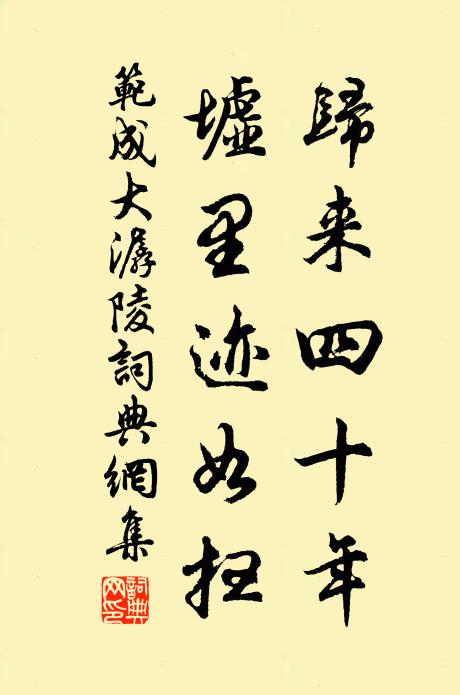 歸来四十年
墟里迹如扫
範成大潺陵詞典網集
詞典网印